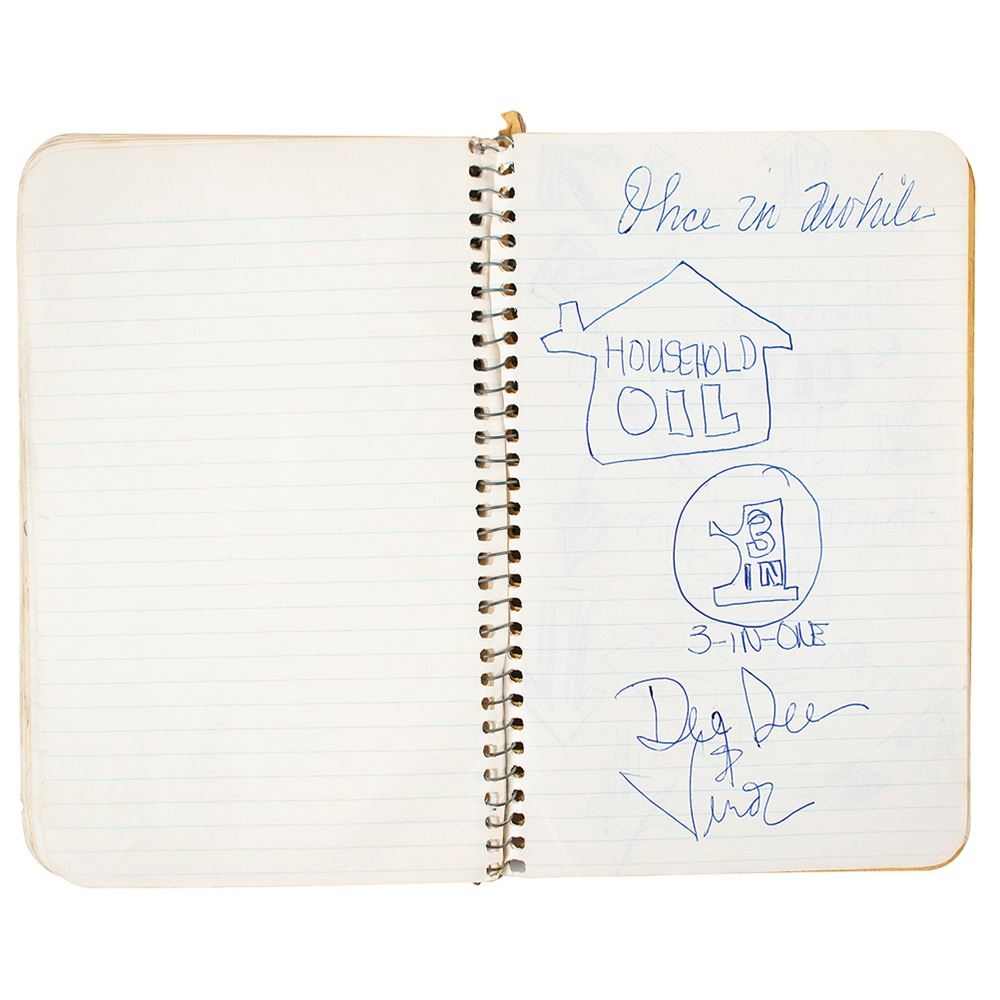 Once in Awhile
HOUSEHOLD
OIL
3
IN
1
3-IN-ONE
Dee
&